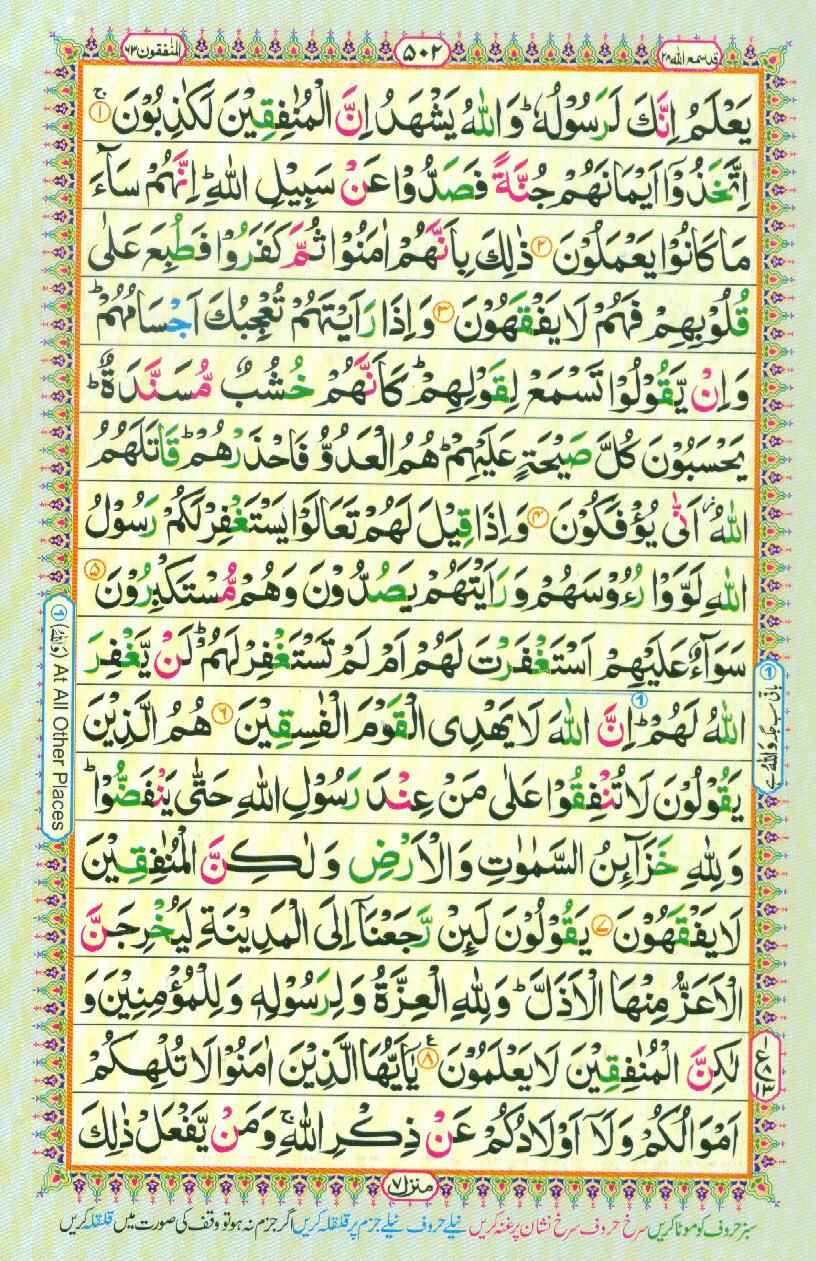 قد سمع الله ۲۸
۵۰۲
المنٰفقون ۶۳
يَعْلَمُ اِنَّكَ لَرَسُوْلُهٗ ؕ وَاللّٰهُ يَشْهَدُ اِنَّ الْمُنٰفِقِيْنَ لَكٰذِبُوْنَ ۚ ۱
اِتَّخَذُوْۤا اَيْمَانَهُمْ جُنَّةً فَصَدُّوْا عَنْ سَبِيْلِ اللّٰهِ ؕ اِنَّهُمْ سَآءَ
مَا كَانُوْا يَعْمَلُوْنَ ۲ ذٰلِكَ بِاَنَّهُمْ اٰمَنُوْا ثُمَّ كَفَرُوْا فَطُبِعَ عَلٰى
قُلُوْبِهِمْ فَهُمْ لَا يَفْقَهُوْنَ ۳ وَاِذَا رَاَيْتَهُمْ تُعْجِبُكَ اَجْسَامُهُمْ ؕ
وَاِنْ يَّقُوْلُوْا تَسْمَعْ لِقَوْلِهِمْ ؕ كَاَنَّهُمْ خُشُبٌ مُّسَنَّدَةٌ ؕ
يَحْسَبُوْنَ كُلَّ صَيْحَةٍ عَلَيْهِمْ ؕ هُمُ الْعَدُوُّ فَاحْذَرْهُمْ ؕ قَاتَلَهُمُ
اللّٰهُ ؗ اَنّٰى يُؤْفَكُوْنَ ۴ وَاِذَا قِيْلَ لَهُمْ تَعَالَوْا يَسْتَغْفِرْ لَكُمْ رَسُوْلُ
اللّٰهِ لَوَّوْا رُءُوْسَهُمْ وَرَاَيْتَهُمْ يَصُدُّوْنَ وَهُمْ مُّسْتَكْبِرُوْنَ ۵
سَوَآءٌ عَلَيْهِمْ اَسْتَغْفَرْتَ لَهُمْ اَمْ لَمْ تَسْتَغْفِرْ لَهُمْ ؕ لَنْ يَّغْفِرَ
اللّٰهُ لَهُمْ ؕ اِنَّ اللّٰهَ لَا يَهْدِى الْقَوْمَ الْفٰسِقِيْنَ ۶ هُمُ الَّذِيْنَ
يَقُوْلُوْنَ لَا تُنْفِقُوْا عَلٰى مَنْ عِنْدَ رَسُوْلِ اللّٰهِ حَتّٰى يَنْفَضُّوْا ؕ
وَلِلّٰهِ خَزَآئِنُ السَّمٰوٰتِ وَالْاَرْضِ وَلٰكِنَّ الْمُنٰفِقِيْنَ
لَا يَفْقَهُوْنَ ۷ يَقُوْلُوْنَ لَئِنْ رَّجَعْنَاۤ اِلَى الْمَدِيْنَةِ لَيُخْرِجَنَّ
الْاَعَزُّ مِنْهَا الْاَذَلَّ ؕ وَلِلّٰهِ الْعِزَّةُ وَلِرَسُوْلِهٖ وَلِلْمُؤْمِنِيْنَ وَ
لٰكِنَّ الْمُنٰفِقِيْنَ لَا يَعْلَمُوْنَ ۸ ع يٰۤاَيُّهَا الَّذِيْنَ اٰمَنُوْا لَا تُلْهِكُمْ
اَمْوَالُكُمْ وَلَاۤ اَوْلَادُكُمْ عَنْ ذِكْرِ اللّٰهِ ۚ وَمَنْ يَّفْعَلْ ذٰلِكَ
① (وَاللّٰهُ) At All Other Places
① باقی سب جگہ وَاللّٰهُ ہے
منزل ۷
سبز حروف کو موٹا کریں سرخ حروف سرخ نشان پر غنہ کریں نیلے حروف نیلے جزم پر قلقلہ کریں اگر جزم نہ ہو تو وقف کی صورت میں قلقلہ کریں